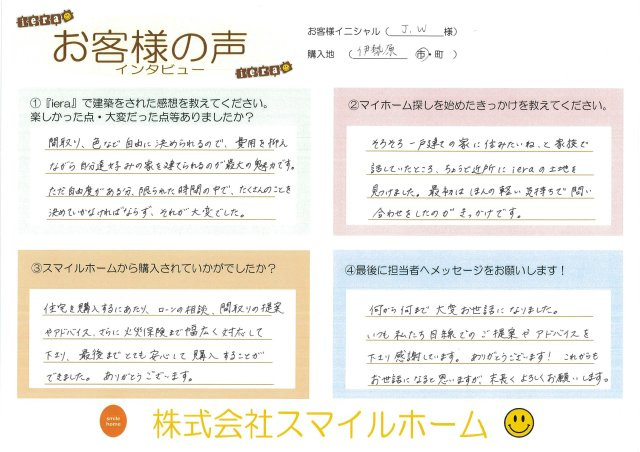 iera
お客様の声
インタビュー
iera
お客様イニシャル（ J.W 様）
購入地 （ 伊勢原 市・町）
①『iera』で建築をされた感想を教えてください。
楽しかった点・大変だった点等ありましたか？
間取り、色など自由に決められるので、費用を抑え
ながら自分達好みの家を建てられるのが最大の魅力です。
ただ自由度がある分、限られた時間の中で、たくさんのことを
決めていかなければならず、それが大変でした。
②マイホーム探しを始めたきっかけを教えてください。
そろそろ一戸建ての家に住みたいね、と家族で
話していたところ、ちょうど近所にieraの土地を
見つけました。最初はほんの軽い気持ちで問い
合わせをしたのがきっかけです。
③スマイルホームから購入されていかがでしたか？
住宅を購入するにあたり、ローンの相談、間取りの提案
やアドバイス、さらに火災保険まで幅広く対応して
下さり、最後までとても安心して購入することが
できました。ありがとうございます。
④最後に担当者へメッセージをお願いします！
何から何まで大変お世話になりました。
いつも私たち目線でのご提案やアドバイスを
下さり感謝しています。ありがとうございます！これからも
お世話になると思いますが、末長くよろしくお願いします。
smile
home
株式会社スマイルホーム